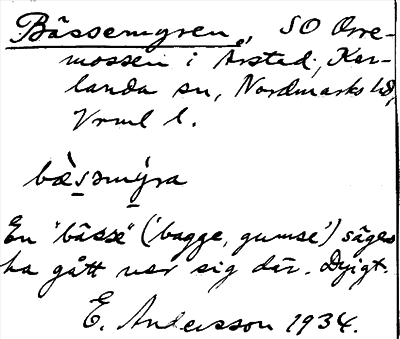 Bässemyren, SO Orre-
mossen i Årstad, Kar-
landa sn, Nordmarks hd,
Vrml l.
bæ̀s̱əmýra
En "bässe" ('bagge, gumse') säges
ha gått ner sig där. Dyigt.
E. Andersson 1934.